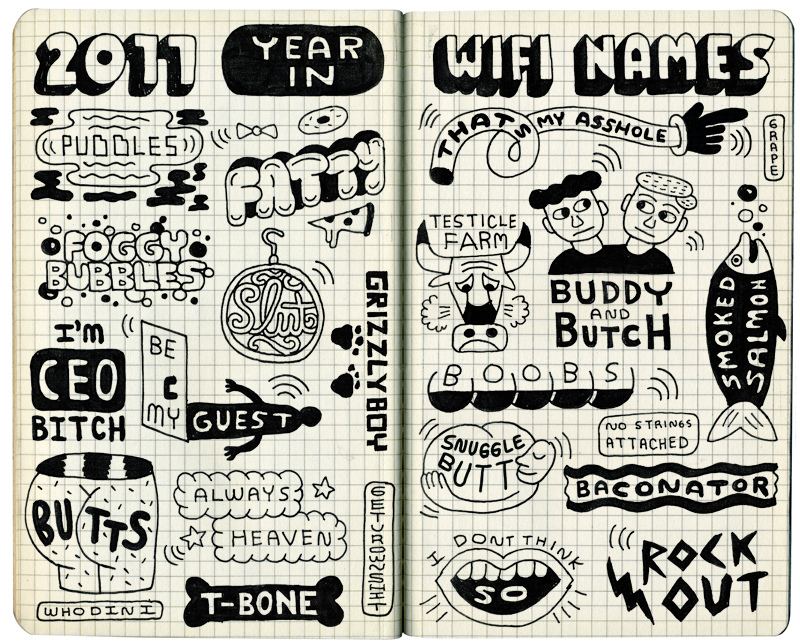 2011
YEAR
IN
PUDDLES
FATTY
FOGGY
BUBBLES
Slut
I'M
CEO
BITCH
BE
MY
GUEST
GRIZZLY BOY
BUTTS
ALWAYS
HEAVEN
GETUROWNSHIT
WHODINI
T-BONE
WIFI NAMES
THAT'S MY ASSHOLE
GRAPE
TESTICLE
FARM
BUDDY
AND
BUTCH
SMOKED
SALMON
BOOBS
NO STRINGS
ATTACHED
SNUGGLE
BUTT
BACONATOR
I DONT THINK
SO
ROCK
OUT